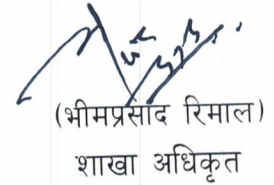 (भीमप्रसाद रिमाल)
शाखा अधिकृत